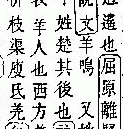 遥也屈原離騷
文羊鳴又姓
姓楚其後也
羊人也西方
枝渠庾氏羌